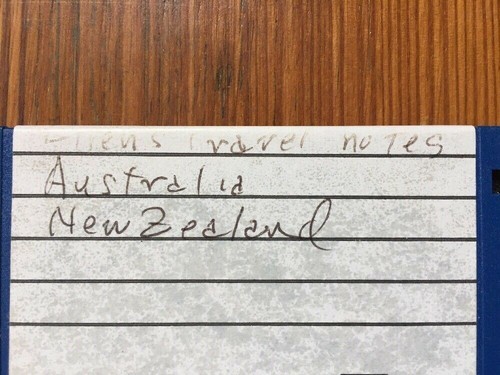 travel notes
Australia
New Zealand